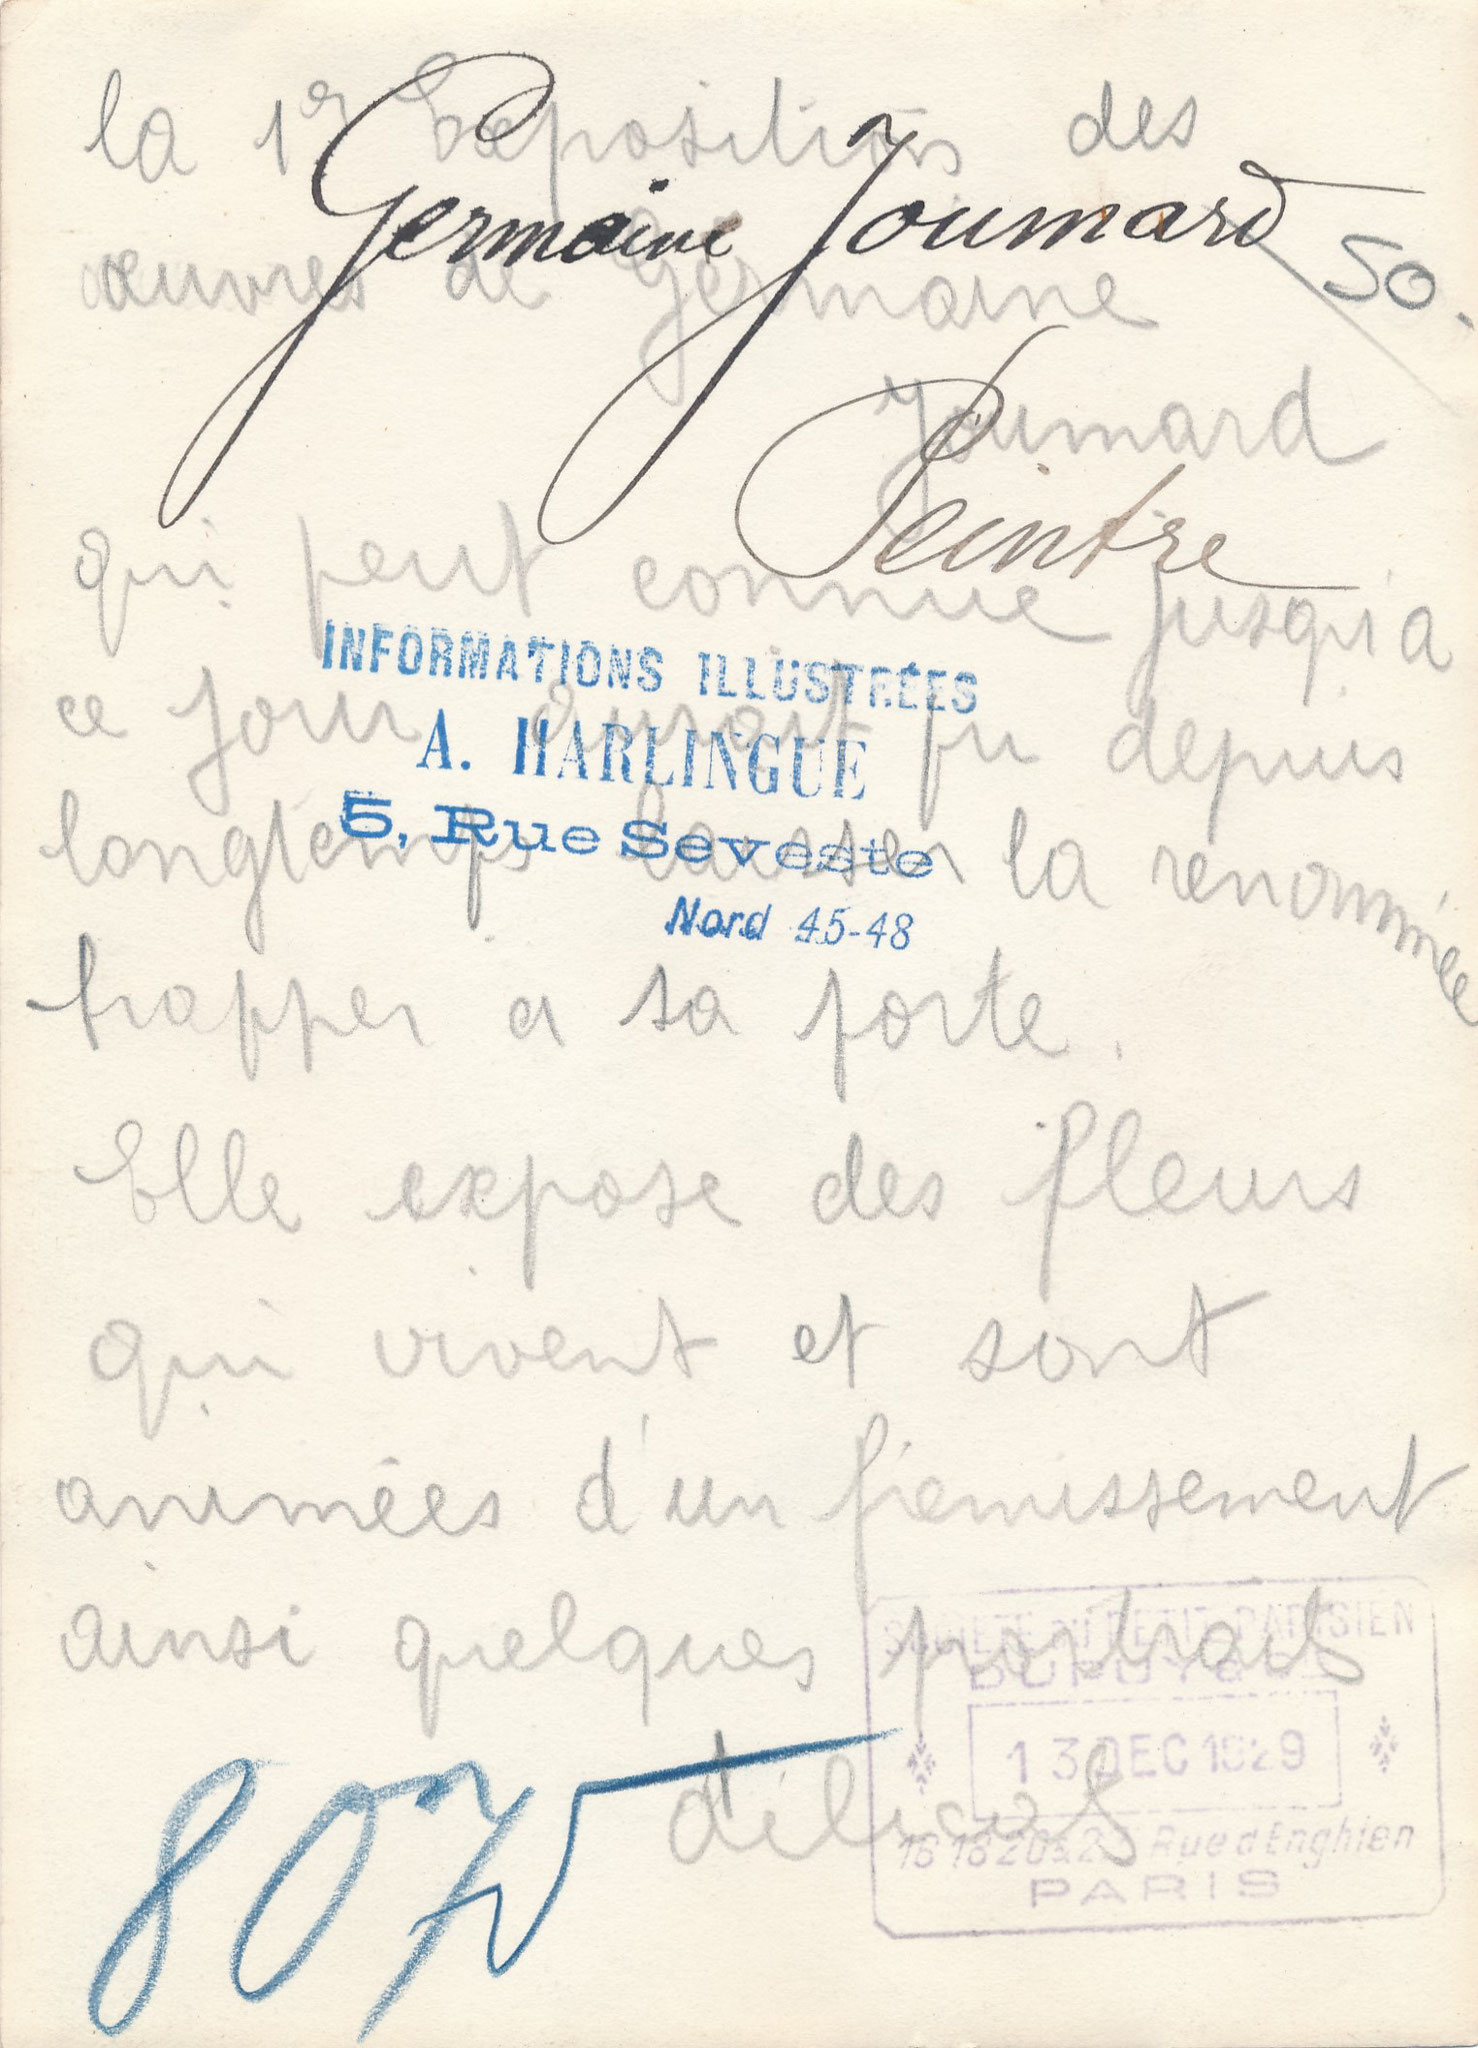 la 1er Exposition des
Germaine Joumard
50.
œuvres de Germaine
Joumard
Peintre
qui peut connue jusqu'à
INFORMATIONS ILLUSTRÉES
ce jour aurait pu depuis
A. HARLINGUE
longtemps laisser la renommée
5, Rue Seveste
Nord 45-48
frapper a sa porte.
Elle expose des fleurs
qui vivent et sont
animées d'un fremissement
ainsi quelques portraits
SOCIÉTÉ DU PETIT PARISIEN
DUPUY & Cie
13 DEC 1929
délicats
16 18 20 & 22 Rue d'Enghien
PARIS
8075